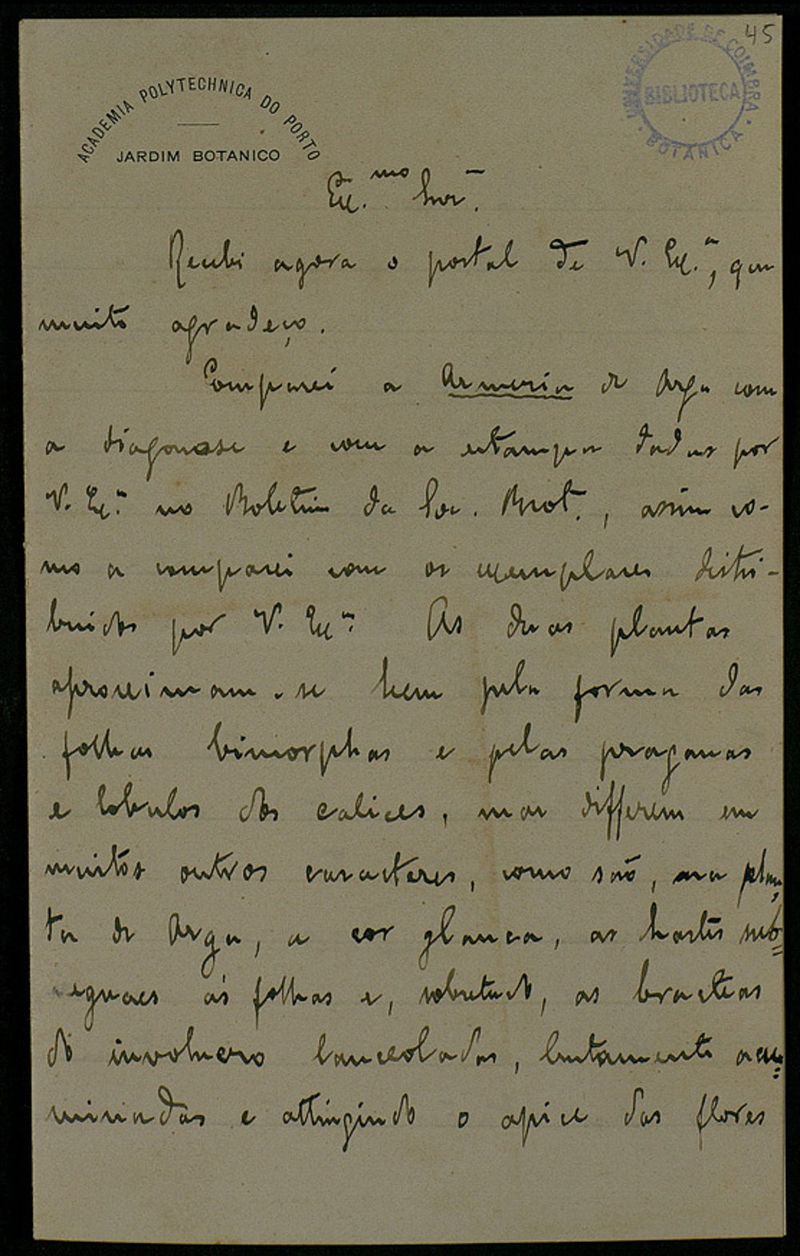 45
ACADEMIA POLYTECHNICA DO PORTO
JARDIM BOTANICO
UNIVERSIDADE DE COIMBRA
BIBLIOTECA
BOTANICA
Ex.mo Snr.
Recebi agora o postal de V. Ex.a, que
muito agradeço.
Comparei a Armeria de Arga com
a diagnose e com a estampa dadas por
V. Ex.a no Boletim da Soc. Brot., assim co-
mo a comparei com os exemplares distri-
buidos por V. Ex.a As duas plantas
aproximam-se bem pela forma das
folhas bimorphas e pelas praganas
e lobulos dos calices, mas differem em
muitos outros caracteres, como são, na plan-
ta de Arga, a cor glauca, as hastes sub=
eguaes ás folhas e, sobretudo, as bracteas
do involucro lanceoladas, lentamente acu=
minadas e attingindo o apice das flores